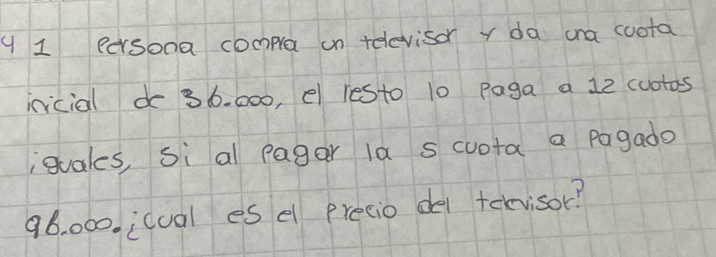 4 1 Persona compra un televisor y da una cuota
inicial de 36.000, el resto lo paga a 12 cuotas
iguales, Si al pagar la 5 cuota a pagado
96.000. ¿cual es el precio del televisor?